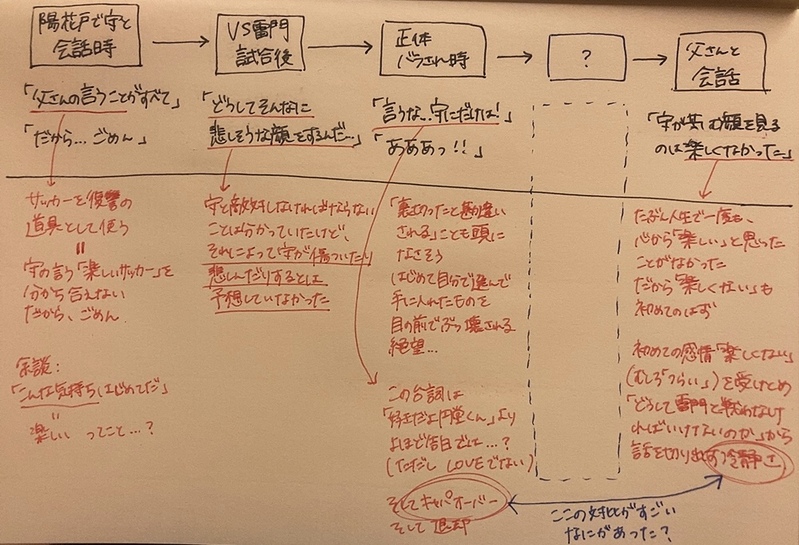 陽花戸で守と
会話時
VS雷門
試合後
正体
バラされ時
?
父さんと
会話
「父さんの言うことがすべて」
「だから…ごめん」
「どうしてそんなに
悲しそうな顔をするんだ…」
「言うな…守にだけは!」
「あああっ!!」
「守が苦しむ顔を見る
のは楽しくなかった…」
サッカーを復讐の
道具として使う
=
守の言う「楽しいサッカー」を
分かち合えない
だから、ごめん
余談:
「こんな気持ちはじめてだ」
=
楽しい ってこと…?
守と敵対しなければならない
ことは分かっていたけど、
それによって守が傷ついたり
悲しんだりするとは
予想していなかった
「裏切ったと勘違い
される」ことを頭に
なさそう
はじめて自分で選んで
手に入れたものを
目の前でぶっ壊される
絶望…
この台詞は
「好きだよ円堂くん」より
よほど告白では…?
(ただし LOVEでない)
そしてキャパオーバー
そして退却
たぶん人生で一度も、
心から「楽しい」と思った
ことがなかった
だから「楽しくない」も
初めてのはず
初めての感情「楽しくない」
(むしろ「つらい」)を受けとめ
「どうして雷門と戦わなけ
ればいけないのか」から
話を切り出す冷静さ
ここの対比がすごい
なにがあった?